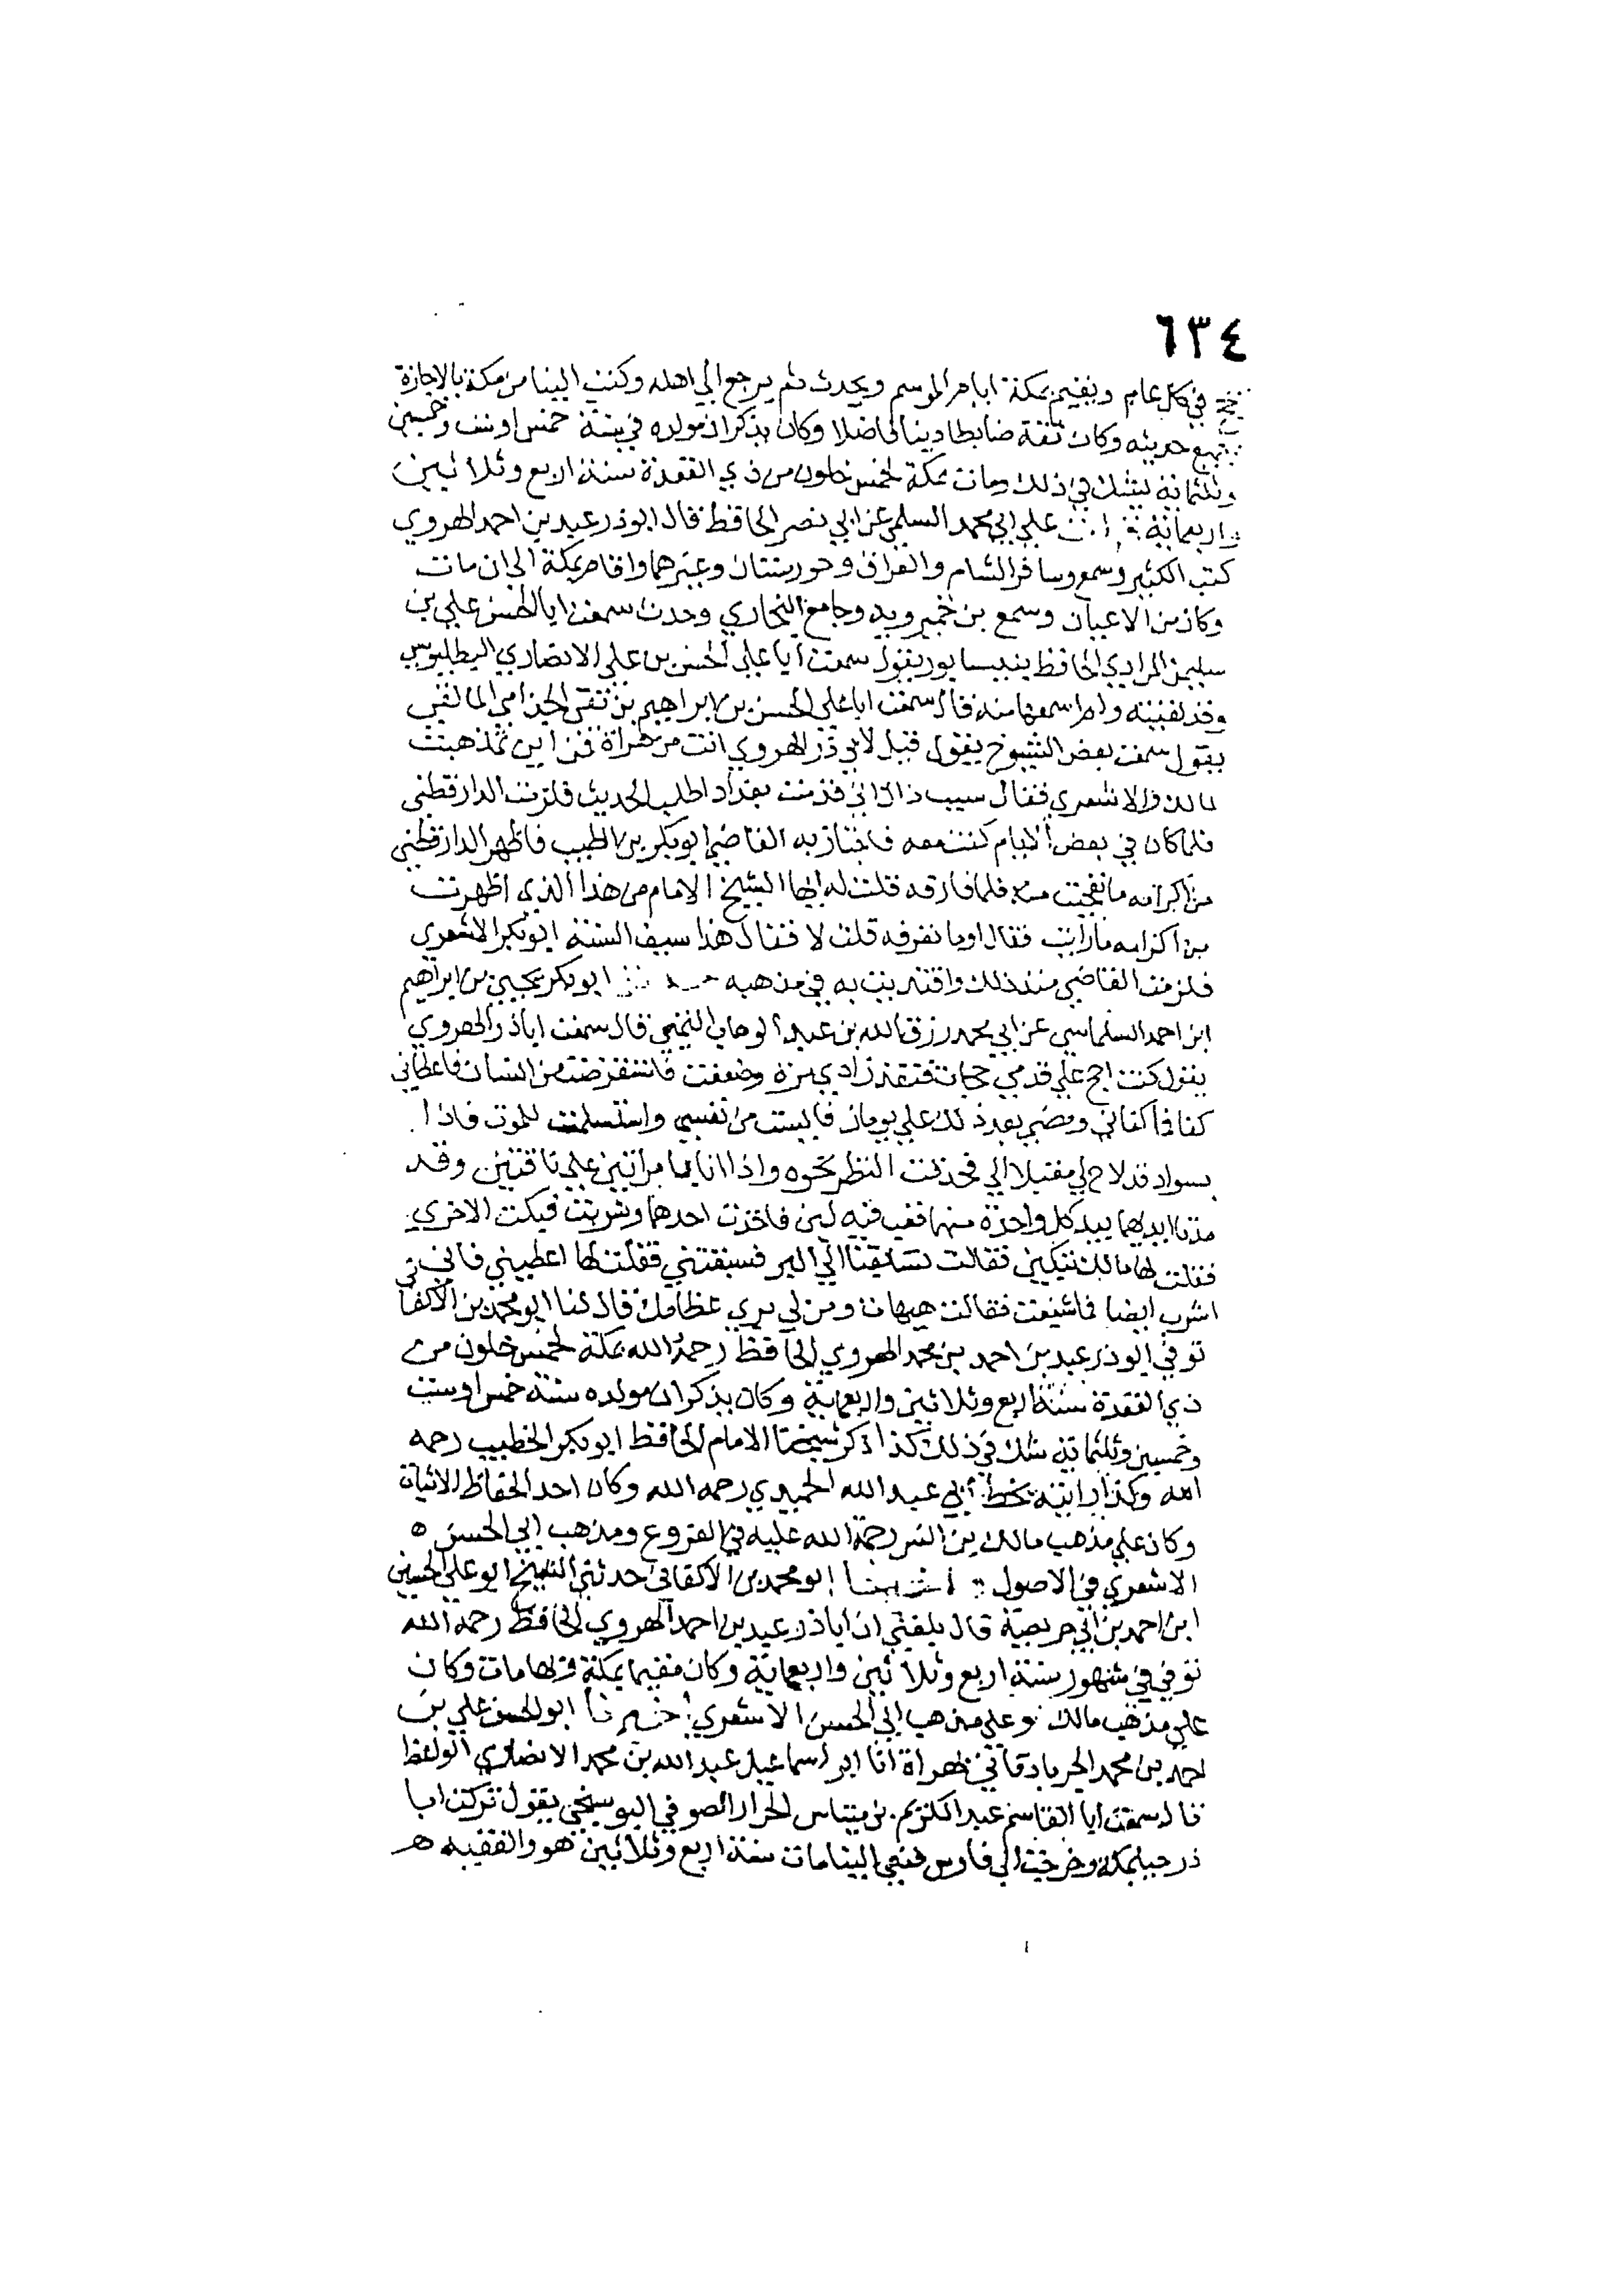 ٦٣٤
يحج في كل عام ويقيم بمكة ايام الموسم ويحدث ثم يرجع الي اهله وكتب الينا من مكة بالاجازة
بجميع حديثه وكان ثقة ضابطا دينا فاضلا وكان يذكر ان مولده في سنة خمس او ست وخمسين
وثلثمائة يشك في ذلك ومات بمكة لخمس خلون من ذي القعدة سنة اربع وثلاثين
واربعمائة قرات علي ابي محمد السلمي عن ابي نصر الحافظ قال ابو ذر عبد بن احمد الهروي
كتب الكثير وسمع وسافر الشام والعراق وخوزستان وغيرهما واقام بمكة الي ان مات
وكان من الاعيان وسمع بن خميرويه وجامع البخاري وحدث سمعت ابا الحسن علي بن
سليمن المرادي الحافظ بنيسابور يقول سمعت ابا علي الحسن بن علي الانصاري البطليوسي
وقد لقيته ولم اسمعها منه قال سمعت ابا علي الحسن بن ابراهيم بن تقي الجذامي المالقي
يقول سمعت بعض الشيوخ يقول قيل لابي ذر الهروي انت من هراة فمن اين تمذهبت
لمالك والاشعري فقال سبب ذلك اني قدمت بغداد اطلب الحديث فلزمت الدارقطني
فلما كان في بعض الايام كنت معه فاجتاز به القاضي ابو بكر بن الطيب فاظهر الدارقطني
من اكرامه ما تعجبت منه فلما فارقه قلت له ايها الشيخ الامام من هذا الذي اظهرت
من اكرامه ما رايت فقال اوما تعرفه قلت لا فقال هذا سيف السنة ابو بكر الاشعري
فلزمت القاضي منذ ذلك واقتديت به في مذهبه ابو بكر يحيي بن ابراهيم
ابن احمد السلماسي عن ابي محمد رزق الله بن عبد الوهاب التميمي قال سمعت ابا ذر الهروي
يقول كنت احج علي قدمي حجات فنفد زادي مرة وضعفت فاستقرضت من انسان فاعطاني
كفا فاكفاني ومضي بعد ذلك علي يومان فايست من نفسي واستسلمت للموت فاذا
بسواد قد لاح لي مقبلا الي فحددت النظر نحوه واذا انا بامراتين علي ناقتين وقد
مدتا ايديهما بيد كل واحدة منهما قعب فيه لبن فاخذت احدهما وشربت فبكت الاخري
فقلت لها مالك تبكين فقالت تسابقنا الي البر فسبقتني فقلت لها اعطيني فاني
اشرب ايضا فاشبعت فقالت هيهات ومن لي بري عظامك قال لنا ابو محمد بن الاكفاني
توفي ابو ذر عبد بن احمد بن محمد الهروي الحافظ رحمه الله بمكة لخمس خلون من
ذي القعدة سنة اربع وثلاثين واربعمائة وكان يذكر ان مولده سنة خمس او ست
وخمسين وثلثمائة شك في ذلك كذا ذكر شيخنا الامام الحافظ ابو بكر الخطيب رحمه
الله وكذا رايته بخط ابي عبد الله الحميدي رحمه الله وكان احد الحفاظ الاثبات
وكان علي مذهب مالك بن انس رحمة الله عليه في الفروع ومذهب ابي الحسن ه
الاشعري في الاصول ابو محمد بن الاكفاني حدثني الشيخ ابو علي الحسين
ابن احمد بن ابي حريصة قال بلغني ان ابا ذر عبد بن احمد الهروي الحافظ رحمه الله
توفي في شهور سنة اربع وثلاثين واربعمائة وكان مقيما بمكة وبها مات وكان
علي مذهب مالك وعلي مذهب ابي الحسن الاشعري اخبرنا ابو الحسن علي بن
احمد بن محمد الجرباذقاني بهراة انا ابو اسماعيل عبد الله بن محمد الانصاري الواعظ
قال سمعت ابا القاسم عبد الكريم بن الصوفي البوسنجي يقول تركت ابا
ذر حيا بمكة وخرجت الي فارس فنعي الينا مات سنة اربع وثلاثين هو والفقيه